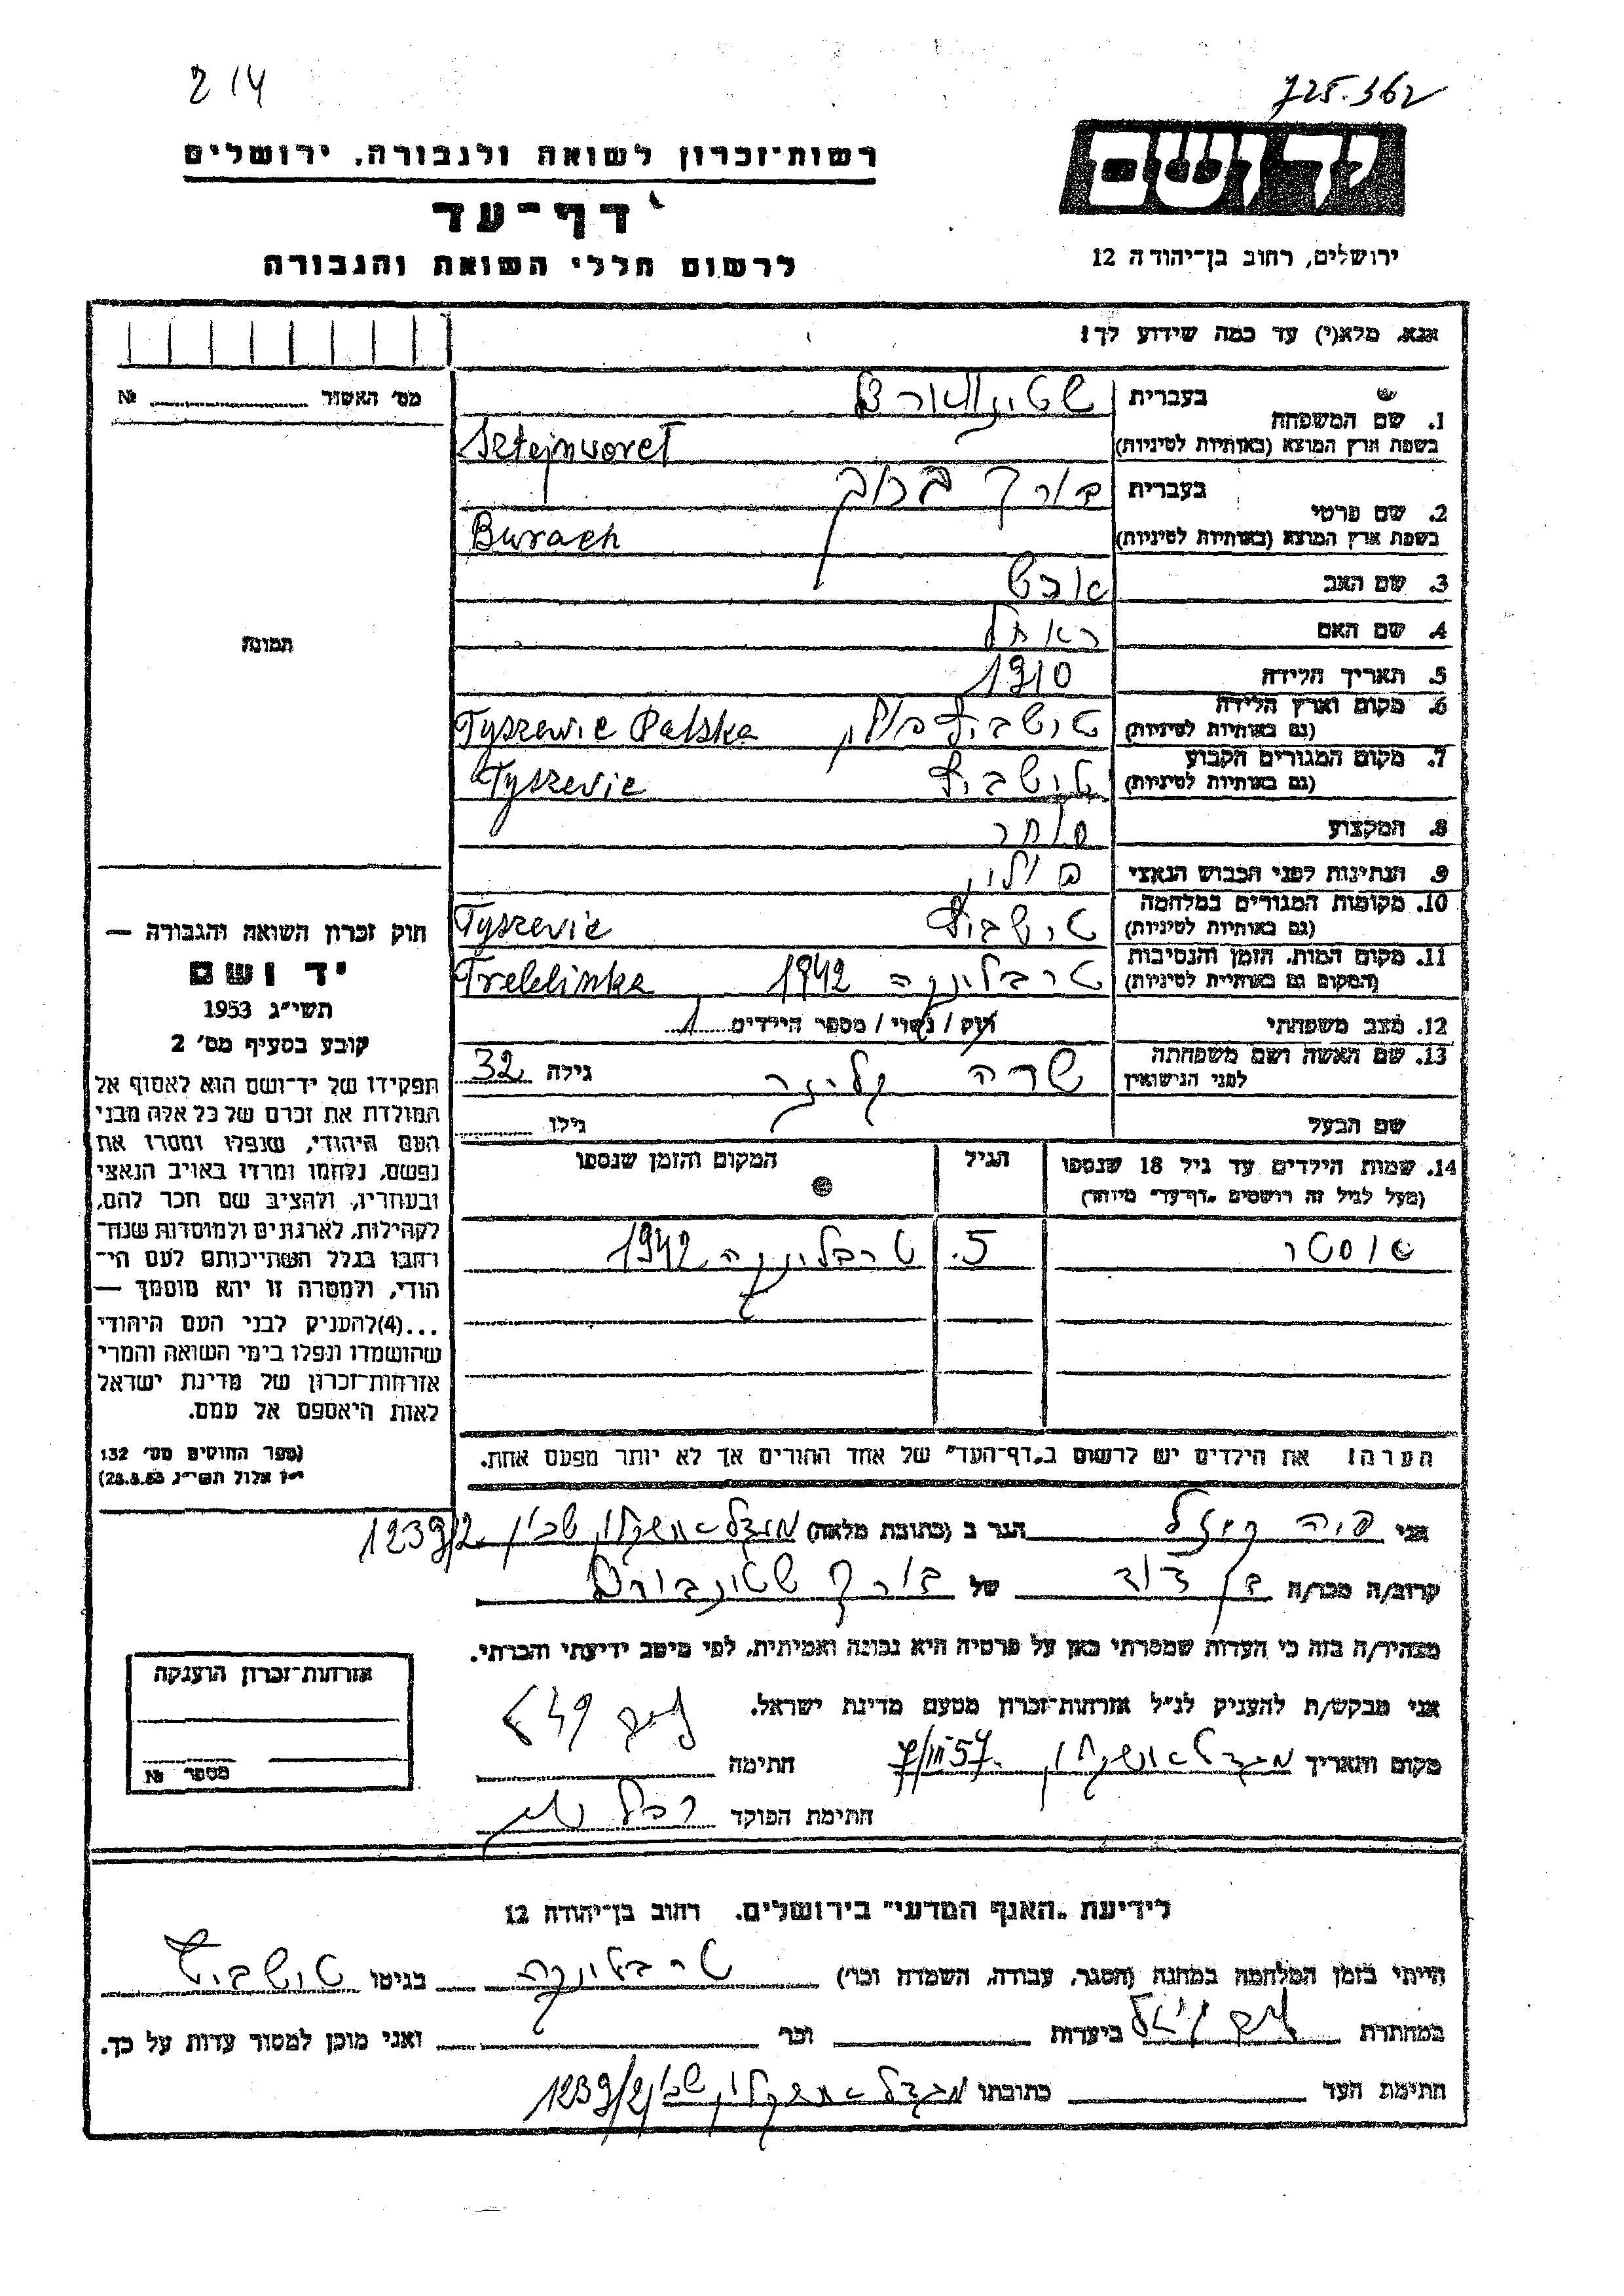 214
725.362
רשות־זכרון לשואה ולגבורה, ירושלים
דף־עד
לרשום חללי השואה והגבורה
יד ושם
ירושלים, רחוב בן־יהודה 12
אנא, מלא(י) עד כמה שידוע לך!
מס' האשור № 
1. שם המשפחה בעברית
בשפת ארץ המוצא (באותיות לטיניות) Sztejnworcl
2. שם פרטי בעברית בורך ברוך
בשפת ארץ המוצא (באותיות לטיניות) Burach
3. שם האב
4. שם האם ראחל
5. תאריך הלידה 1910
6. מקום וארץ הלידה (גם באותיות לטיניות) טישביץ פולין Tyszewic Polska
7. מקום המגורים הקבוע (גם באותיות לטיניות) טישביץ Tyszevic
8. המקצוע סוחר
9. הנתינות לפני הכבוש הנאצי פולין
10. מקומות המגורים במלחמה (גם באותיות לטיניות) טישביץ Tyszevic
11. מקום המות, הזמן והנסיבות (המקום גם באותיות לטיניות) טרבלינקה 1942 Treblinka
12. מצב משפחתי רווק / נשוי / מספר הילדים 1
13. שם האשה ושם משפחתה לפני הנישואין שרה גילה 32
שם הבעל גילו
14. שמות הילדים עד גיל 18 שנספו
(מעל לגיל זה רושמים "דף־עד" מיוחד)
הגיל
המקום והזמן שנספו
5. טרבלינקה 1942
הערה: את הילדים יש לרשום ב"דף־העד" של אחד ההורים אך לא יותר מפעם אחת.
תמונה
חוק זכרון השואה והגבורה —
יד ושם
תשי"ג 1953
קובע בסעיף מס' 2
תפקידו של יד־ושם הוא לאסוף אל
המולדת את זכרם של כל אלה מבני
העם היהודי, שנפלו ומסרו את
נפשם, נלחמו ומרדו באויב הנאצי
ובעוזריו, ולהציב שם וזכר להם,
לקהילות, לארגונים ולמוסדות שנח־
רבו בגלל השתייכותם לעם הי־
הודי, ולמטרה זו יהא מוסמך —
...(4)להעניק לבני העם היהודי
שהושמדו ונפלו בימי השואה והמרי
אזרחות־זכרון של מדינת ישראל
לאות היאספם אל עמם.
(ספר החוקים מס' 132
י"ז אלול תשי"ג 28.8.53)
אני הגר ב (כתובת מלאה) מגדל-אשקלון 1239/2
קרוב/ה מכר/ה בן דוד של בורך
מצהיר/ה בזה כי העדות שמסרתי כאן על פרטיה היא נכונה ואמיתית, לפי מיטב ידיעתי והכרתי.
אני מבקש/ת להעניק לנ"ל אזרחות־זכרון מטעם מדינת ישראל.
מקום ותאריך מגדל-אשקלון חתימה
חתימת הפוקד
אזרחות־זכרון הוענקה
מספר №
לידיעת "האגף המדעי" בירושלים, רחוב בן־יהודה 12
הייתי בזמן המלחמה במחנה (הסגר, עבודה, השמדה וכו') טרבלינקה בגיטו טישביץ
במחתרת ביערות וכו' ואני מוכן למסור עדות על כך.
חתימת העד כתובתו מגדל-אשקלון 1239/2